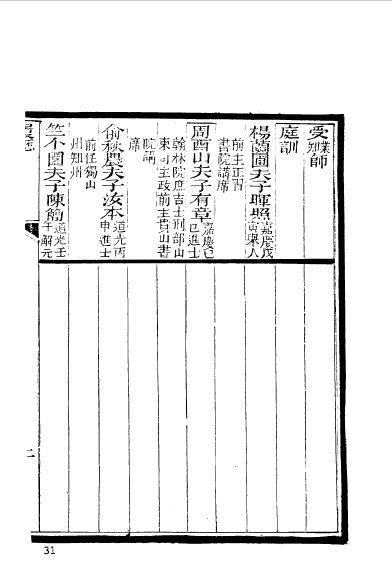 受業知師
庭訓
楊蘭圃夫子暉照嘉慶戊寅舉人
前主正習
書院講席
周酉山夫子有章嘉慶己巳進士
翰林院庶吉士刑部山
東司主政前主貫山書
院講
席
俞秋農夫子汝本道光丙申進士
前任獨山
州知州
竺不園夫子陳簡道光壬午解元
31